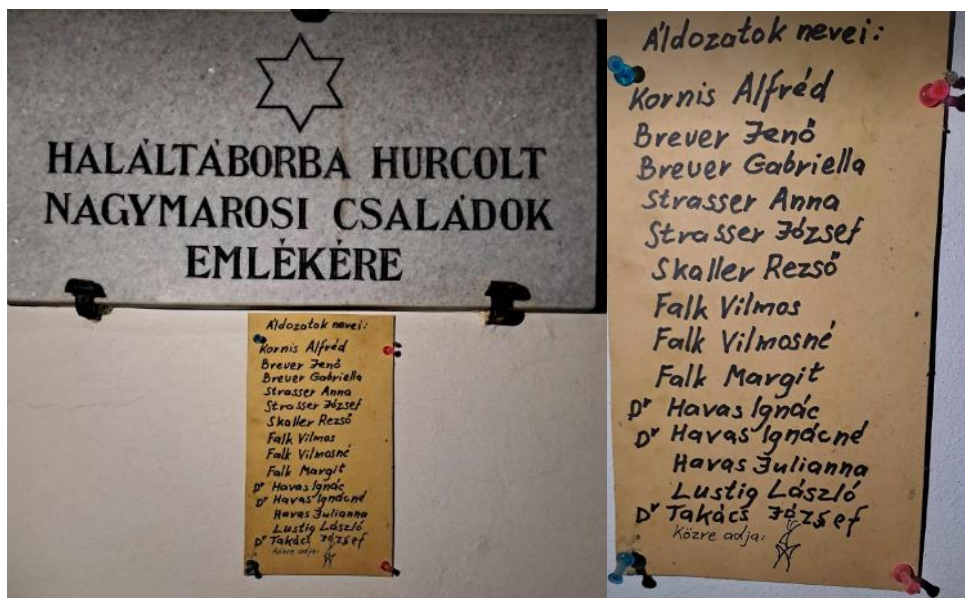 HALÁLTÁBORBA HURCOLT
NAGYMAROSI CSALÁDOK
EMLÉKÉRE
Áldozatok nevei:
Kornis Alfréd
Breuer Jenő
Breuer Gabriella
Strasser Anna
Strasser József
Skaller Rezső
Falk Vilmos
Falk Vilmosné
Falk Margit
Dr Havas Ignác
Dr Havas Ignácné
Havas Julianna
Lustig László
Dr Takács József
Közre adja:
Áldozatok nevei:
Kornis Alfréd
Breuer Jenő
Breuer Gabriella
Strasser Anna
Strasser József
Skaller Rezső
Falk Vilmos
Falk Vilmosné
Falk Margit
Dr Havas Ignác
Dr Havas Ignácné
Havas Julianna
Lustig László
Dr Takács József
Közre adja: